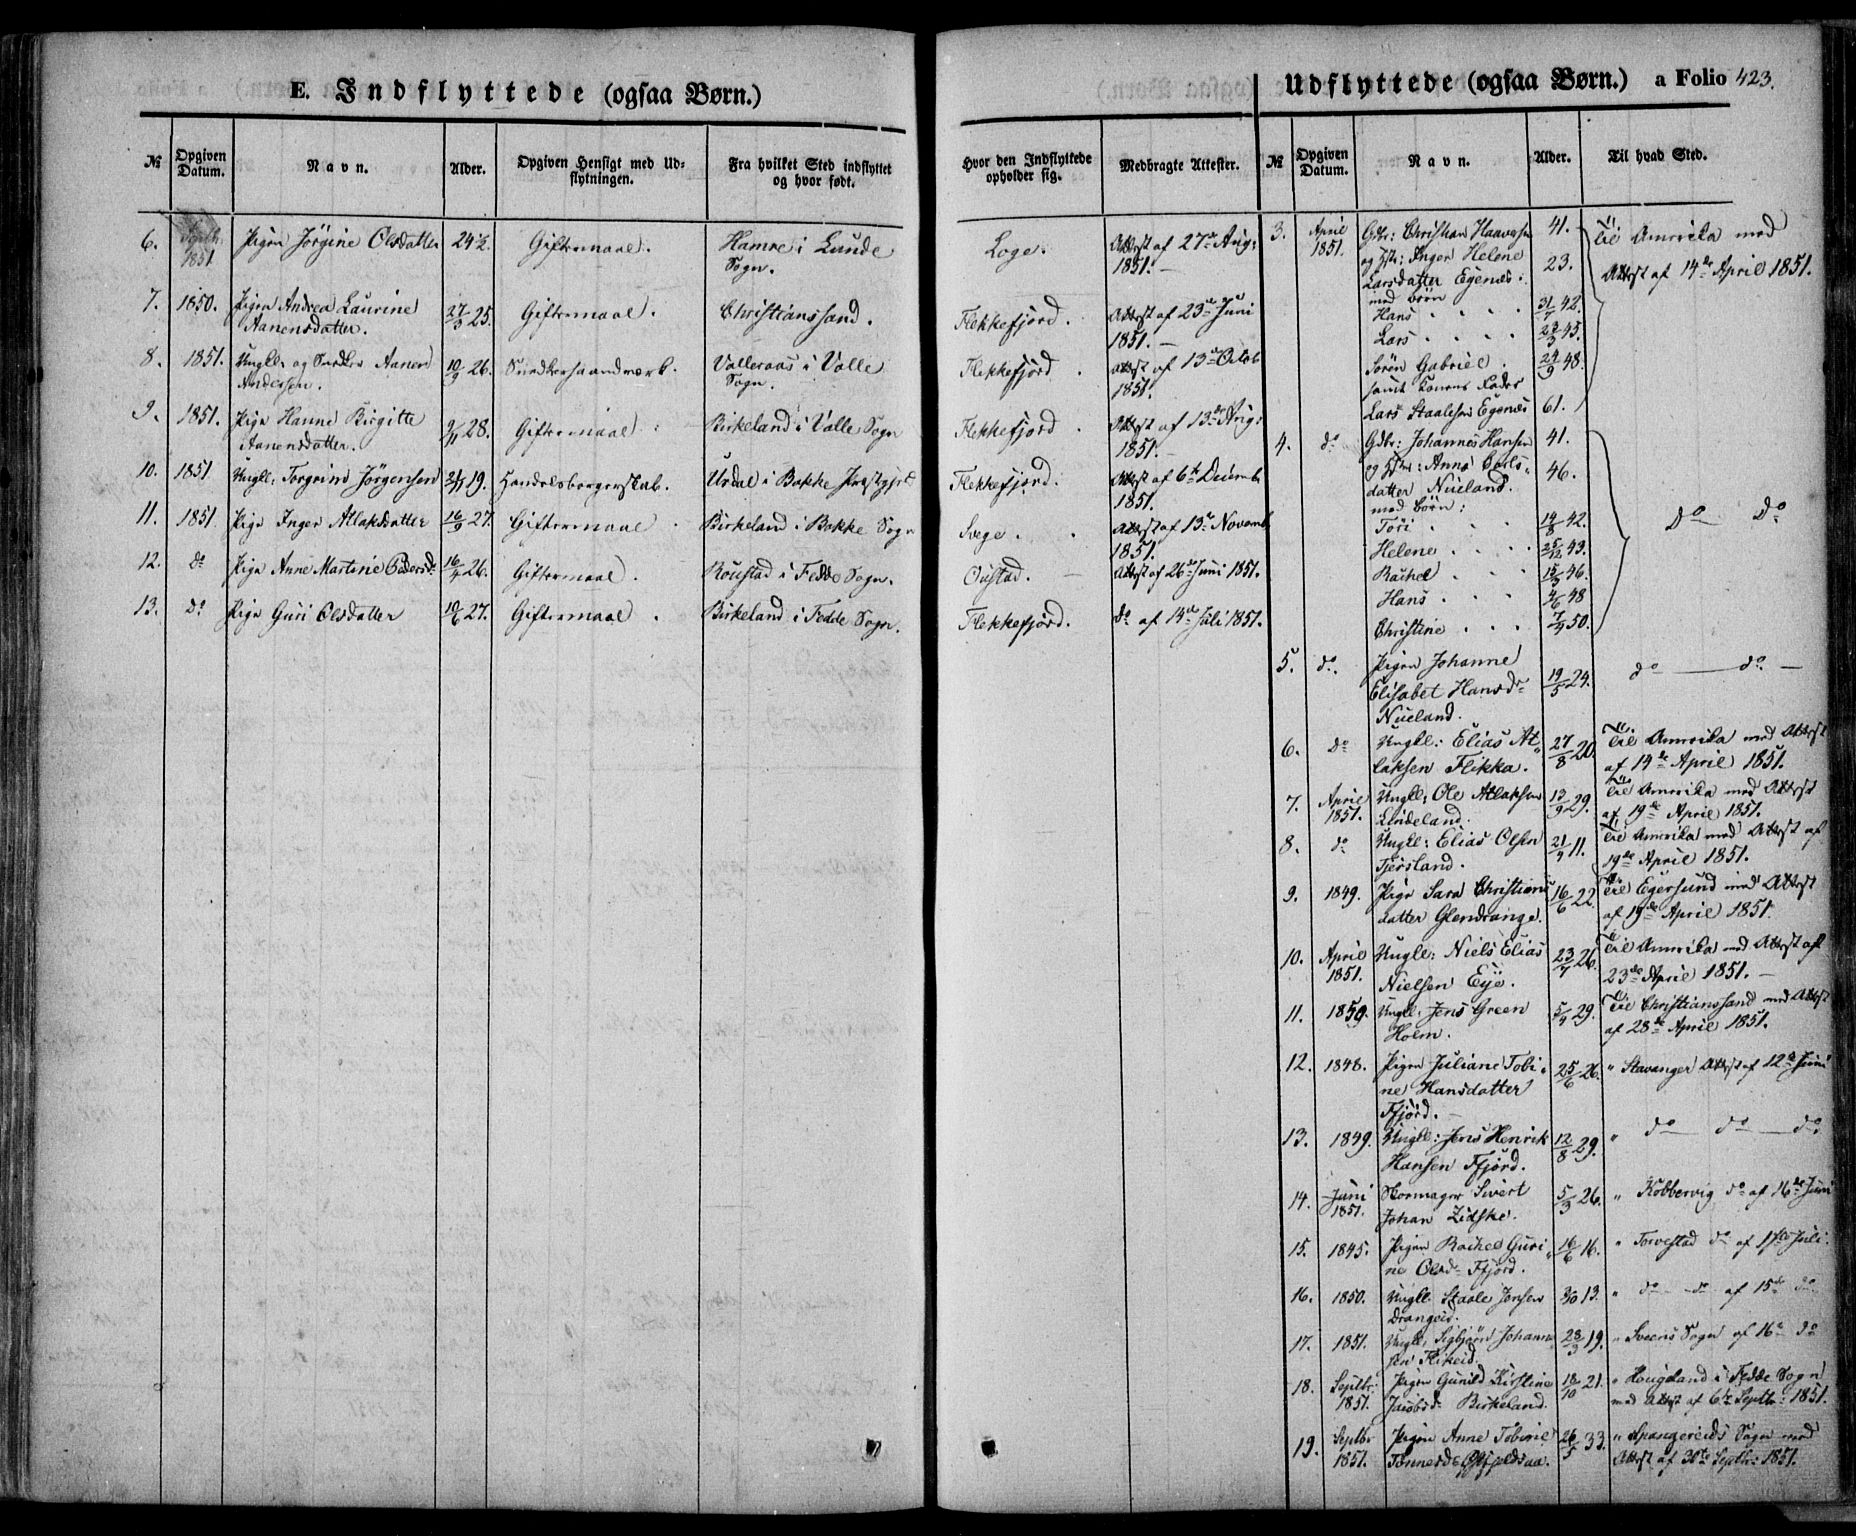 E. Indflyttede (ogsaa Børn.)
№ Opgiven Datum. Navn. Alder. Opgiven Hensigt med Udflytningen. Fra hvilket Sted indflyttet og hvor født. Hvor den Indflyttede opholder sig. Medbragte Attester.
6. Septbr. 1851 Pigen Jörgine Olsdatter 24½. Giftermaal. Hamre i Lunde Sogn. Loge. Attest af 27de Aug: 1851. —
7. 1850. Pigen Andrea Laurine Aanensdatter. 27/3 25. Giftermaal. Christianssand. Flekkefjord. Attest af 23de Juni 1851. —
8. 1851. Ungk: og Snedker Aanen Andersen. 10/9 26. Snedkerhaandværk. Valleraas i Valle Sogn. Flekkefjord. Attest af 13de Octob 1851.
9. 1851. Pige Hanne Birgitte Aanensdatter. 9/11 28. Giftermaal. Birkeland i Valle Sogn Flekkefjord. Attest af 13de Aug: 1851. —
10. 1851 Ungk: Torgrim Jörgensen 19. Handelsborgerskab. Urdal i Bakke Præstgjeld Flekkefjord. Attest af 6te Decemb 1851.
11. 1851. Pige Inger Atlaksdatter 16/9 27. Giftermaal. Birkeland i Bakke Sogn Svege. Attest af 13de Novemb. 1851.
12. do Pige Anne Martine Pedersd. 16/4 26. Giftermaal. Roustad i Fedde Sogn. Oustad. Attest af 26de Juni 1851.
13. do Pige Guri Olsdatter 10/6 27. Giftermaal. Birkeland i Fedde Sogn. Flekkefjord. do af 14de Juli 1851.
Udflyttede (ogsaa Børn.) a Folio 423.
№ Opgiven Datum. Navn. Alder. Til hvad Sted.
3. April 1851. Gdbr: Christian Haavesen 41. Til Amerika med
og Hstr: Inger Helene 23. Attest af 14de April 1851.
Larsdatter Egenæs.
med børn
Hans 31/7 42.
Lars 45.
Sören Gabriel 24/9 48.
samt Konens Fader
Lars Staalesen Egenæs 61.
4. do Gdbr: Johannes Hansen 41.
og Hstr: Anne Carlsdatter Nueland. 46.
med børn: do do
Tori 14/8 42.
Helene 25/12 43.
Rachel 15/5 46.
Hans 4/6 48
Christine 7/9 50.
5. do. Pigen Johanne Elisabet Hansdr Nueland. 19/5 24. do — do —
6. do Ungk: Elias Atlaksen Flikka. 27/8 20. Til Amerika med Attest af 14de April 1851.
7. April 1851. Ungk: Ole Atlaksen Lindeland. 13/9 29. Til Amerika med Attest af 19de April 1851.
8. do Ungk: Elias Olsen Tjersland. 21/9 11. Til Amerika med Attest af 19de April 1851.
9. 1849. Pige Sara Christiansdatter Glendrange. 16/6 22. Til Egersund med Attest af 19de April 1851.
10. April 1851. Ungk: Niels Elias Nielsen Eye. 23/7 26. Til Amerika med Attest af 23de April 1851. —
11. 1850. Ungk: Jens Green Holm. 5/4 29. Til Christianssand med Attest af 28de April 1851.
12. 1848. Pigen Juliane Tobine Hansdatter Ffjord. 25/6 26. " Stavanger Attest af 12te Juni
13. 1849. Ungk: Jens Henrik Hansen Ffjord. 12/8 29. " do — do — do.
14. Juni 1851. Skomager Sivert Johan Zidske. 5/3 26. " Kobbervig do af 16de Juni
15. 1845. Pigen Rachel Gurine Olsdr Ffjord. 16/6 16. " Torvestad do af 17de Juli.
16. 1850. Ungk. Staale Jonsen Drangeid. 3/10 13. " do do af 15de do
17. 1851. Ungk. Sigbjørn Johannesen Flikeid. 28/3 19. " Sveens Sogn af 16de do
18. Septbr: 1851. Pigen Gunild Kirstine Jacobsd. Birkeland. 18/10 21. " Hougeland i Fedde Sogn med Attest af 6te Septbr: 1851.
19. Septbr 1851. Pigen Anne Tobine Tønnesdr 26/5 33. " Spangereids Sogn med Attest af 30te Septbr: 1851.